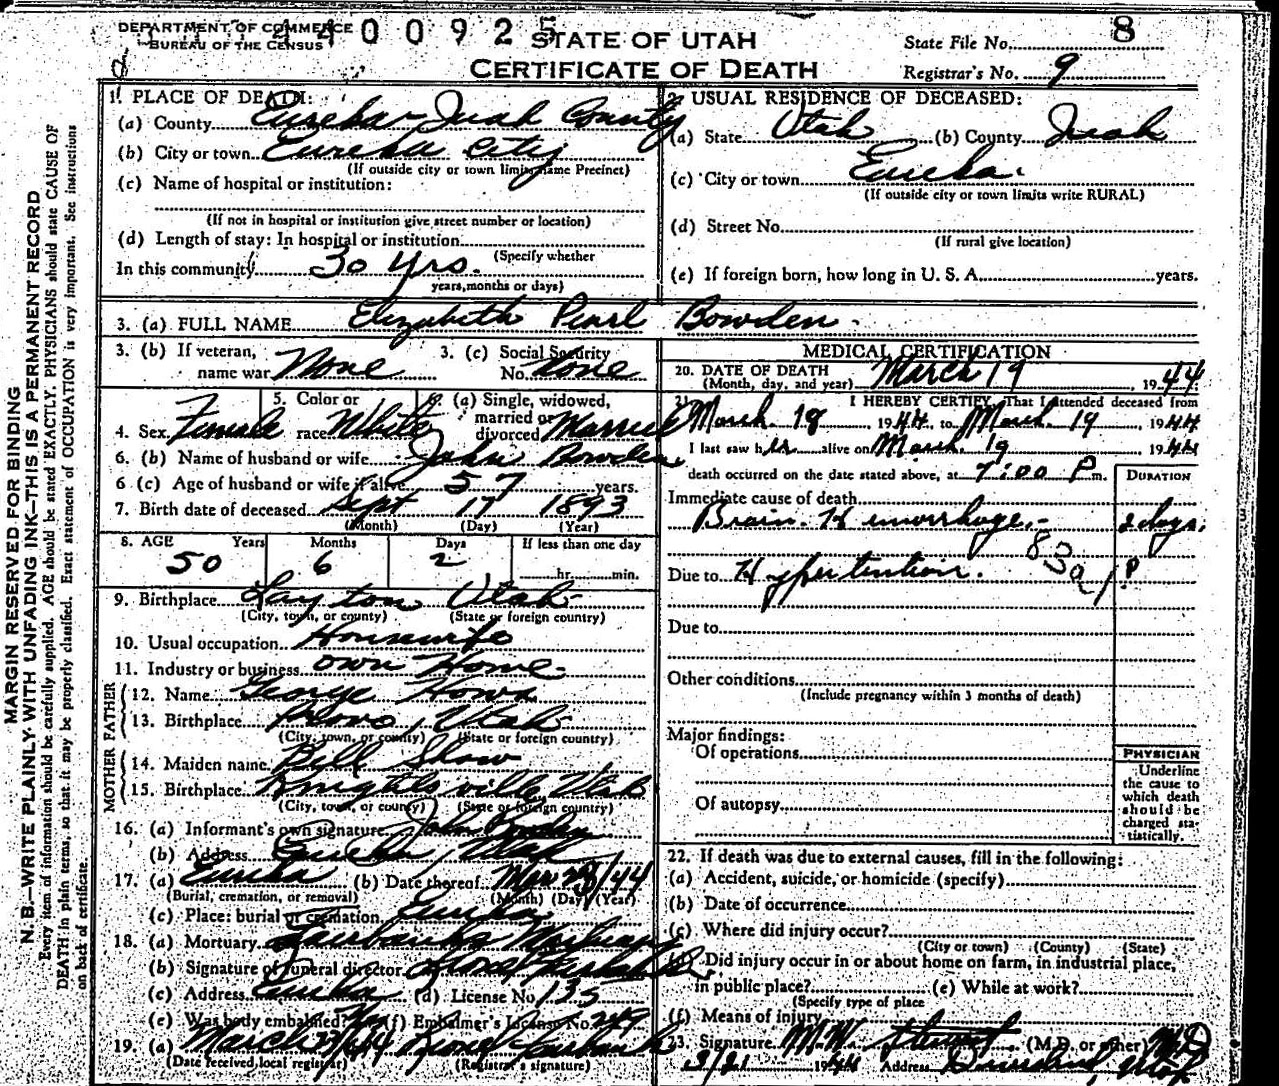 DEPARTMENT OF COMMERCE
BUREAU OF THE CENSUS
400925
STATE OF UTAH
CERTIFICATE OF DEATH
State File No. 8
Registrar's No. 9
MARGIN RESERVED FOR BINDING
N. B.—WRITE PLAINLY WITH UNFADING INK—THIS IS A PERMANENT RECORD
Every item of information should be carefully supplied. AGE should be stated EXACTLY. PHYSICIANS should state CAUSE OF
DEATH in plain terms, so that it may be properly classified. Exact statement of OCCUPATION is very important. See instructions
on back of certificate.
1. PLACE OF DEATH:
(a) County Eureka Juab County
(b) City or town Eureka City
(If outside city or town limits name Precinct)
(c) Name of hospital or institution:
(If not in hospital or institution give street number or location)
(d) Length of stay: In hospital or institution
(Specify whether
In this community 30 yrs.
years, months or days)
2. USUAL RESIDENCE OF DECEASED:
(a) State Utah (b) County Juab
(c) City or town Eureka.
(If outside city or town limits write RURAL)
(d) Street No.
(If rural give location)
(e) If foreign born, how long in U. S. A. years.
3. (a) FULL NAME Elizabeth Pearl Bowden
3. (b) If veteran, name war None
3. (c) Social Security No. none
4. Sex Female
5. Color or race White
6. (a) Single, widowed, married or divorced Married
6. (b) Name of husband or wife John Bowden
6 (c) Age of husband or wife if alive 57 years.
7. Birth date of deceased Sept 17 1893
(Month) (Day) (Year)
8. AGE Years Months Days If less than one day
50 6 2 hr. min.
9. Birthplace Layton Utah
(City, town, or county) (State or foreign country)
10. Usual occupation Housewife
11. Industry or business own Home
FATHER
12. Name George
13. Birthplace Provo, Utah
(City, town, or county) (State or foreign country)
MOTHER
14. Maiden name Bell Shaw
15. Birthplace Knightsville Utah
(City, town, or county) (State or foreign country)
16. (a) Informant's own signature John Bowden
(b) Address Eureka Utah
17. (a) Eureka (b) Date thereof Mar 23/44
(Burial, cremation, or removal) (Month) (Day) (Year)
(c) Place: burial or cremation Eureka
18. (a) Mortuary Fairbanks Mortuary
(b) Signature of funeral director Lional Fairbanks
(c) Address Eureka (d) License No. 135
(e) Was body embalmed? Yes (f) Embalmer's License No. 249
19. (a) March 23/44 Lional Fairbanks
(Date received local registrar) (Registrar's signature)
MEDICAL CERTIFICATION
20. DATE OF DEATH
(Month, day, and year) March 19, 1944
21. I HEREBY CERTIFY, That I attended deceased from
March 18, 1944, to March 19 1944
I last saw her alive on March 19 1944
death occurred on the date stated above, at 7:00 P m.
DURATION
Immediate cause of death
Brain Hemorrhage - 2 days.
83a
Due to Hypertention. ?
Due to
Other conditions
(Include pregnancy within 3 months of death)
Major findings:
Of operations
Of autopsy
PHYSICIAN
Underline
the cause to
which death
should be
charged sta-
tistically.
22. If death was due to external causes, fill in the following:
(a) Accident, suicide, or homicide (specify)
(b) Date of occurrence
(c) Where did injury occur?
(City or town) (County) (State)
(d) Did injury occur in or about home on farm, in industrial place,
in public place? (e) While at work?
(Specify type of place
(f) Means of injury
23. Signature M.W. (M.D. or other) MD
3/21 1944 Address